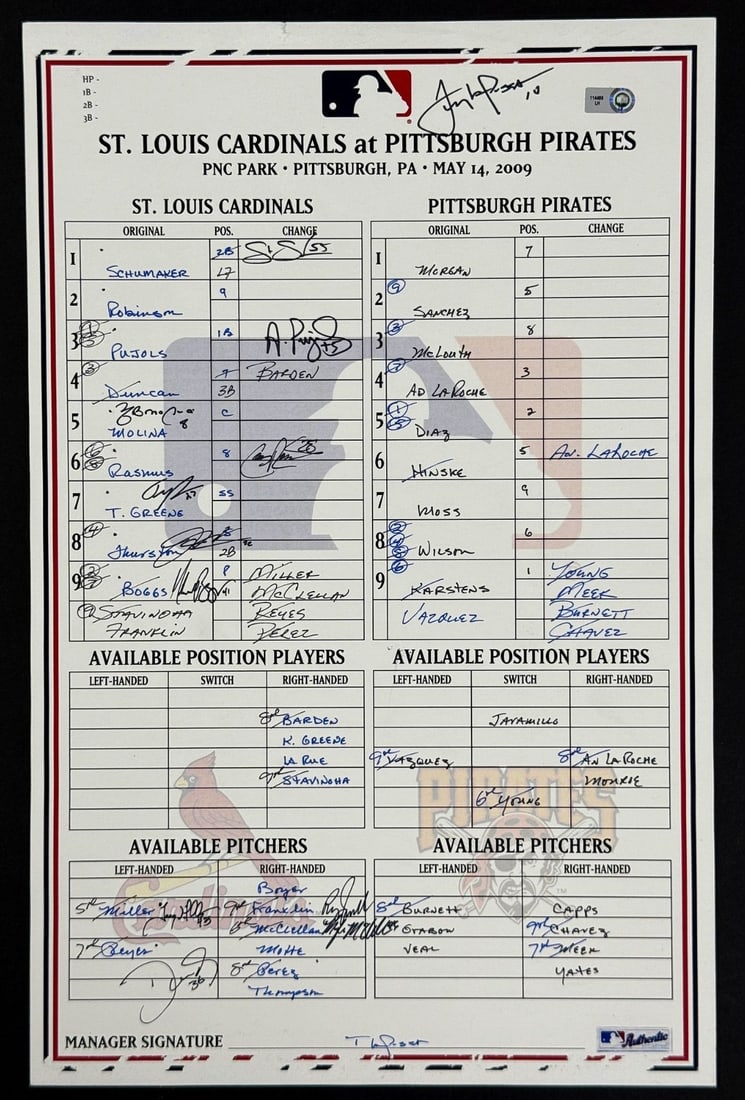 HP -
1B -
2B -
3B -
114488
LH
ST. LOUIS CARDINALS at PITTSBURGH PIRATES
PNC PARK • PITTSBURGH, PA • MAY 14, 2009
ST. LOUIS CARDINALS
ORIGINAL POS. CHANGE
1 SCHUMAKER 2B L7 55
2 Robinson 9
3 PUJOLS 1B A. Pujols
4 Duncan 7 3B BARDEN
5 MOLINA C
6 Rasmus 8 28
7 T. GREENE SS 27
8 Thurston 2B
9 BOGGS P MILLER
41 McCLELLAN
STAVINOHA REYES
FRANKLIN PEREZ
PITTSBURGH PIRATES
ORIGINAL POS. CHANGE
1 MORGAN 7
2 SANCHEZ 5
3 McLouth 8
4 AD LAROCHE 3
5 DIAZ 2
6 HINSKE 5 AN. LAROCHE
7 MOSS 9
8 WILSON 6
9 KARSTENS 1 YOUNG
MEEK
VAZQUEZ BURNETT
CHAVEZ
AVAILABLE POSITION PLAYERS
LEFT-HANDED SWITCH RIGHT-HANDED
8th BARDEN
K. GREENE
LA RUE
9th STAVINOHA
AVAILABLE POSITION PLAYERS
LEFT-HANDED SWITCH RIGHT-HANDED
JARAMILLO
9th VAZQUEZ 8th AN LAROCHE
MONROE
6th YOUNG
PIRATES
Cardinals
AVAILABLE PITCHERS
LEFT-HANDED RIGHT-HANDED
Boyer
5th Miller 9th Franklin
6th McClellan
7th Reyes Motte
36 8th Perez
Thompson
AVAILABLE PITCHERS
LEFT-HANDED RIGHT-HANDED
8th BURNETT CAPPS
GRABOW 9th CHAVEZ
VEAL 7th MEEK
YATES
MANAGER SIGNATURE
Authentic